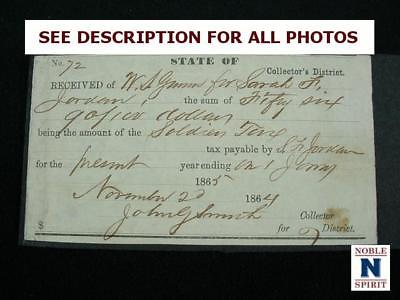 SEE DESCRIPTION FOR ALL PHOTOS
STATE OF
No. 72
Collector's District.
RECEIVED of W. S. Gunn for Sarah F.
Jordan, the sum of Fifty six
90/100 dollars
being the amount of the Soldiers Tax
tax payable by S F Jordan
for the present year ending on 1 Jany
1865
November 20 1864
John G Smith Collector
$ for 7 District.
NOBLE
N
SPIRIT